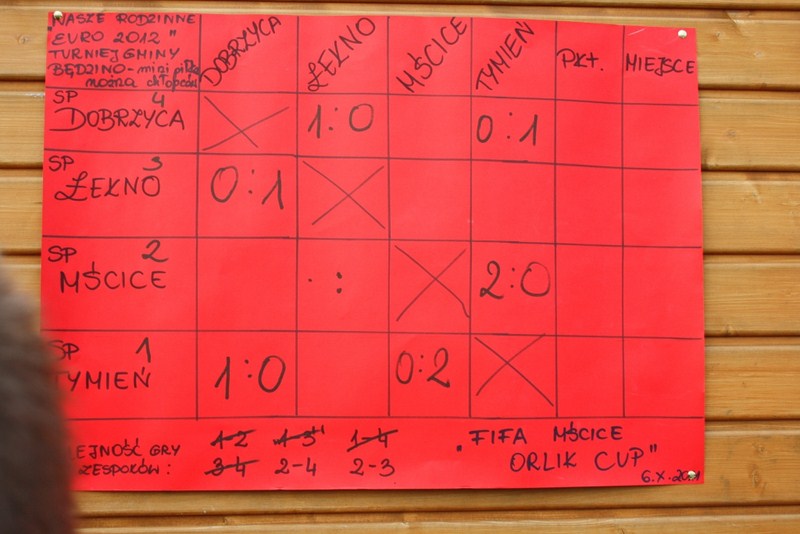 NASZE RODZINNE
"EURO 2012"
TURNIEJ GMINY
BĘDZINO - mini piłka
można chłopców
DOBRZYCA
ŁEKNO
MŚCICE
TYMIEŃ
PKT.
MIEJSCE
SP 4
DOBRZYCA
1:0
0:1
SP 3
ŁEKNO
0:1
SP 2
MŚCICE
. :
2:0
SP 1
TYMIEŃ
1:0
0:2
EJNOŚĆ GRY
ZESPOŁÓW:
1-2 1-3 1-4
3-4 2-4 2-3
"FIFA MŚCICE
ORLIK CUP"